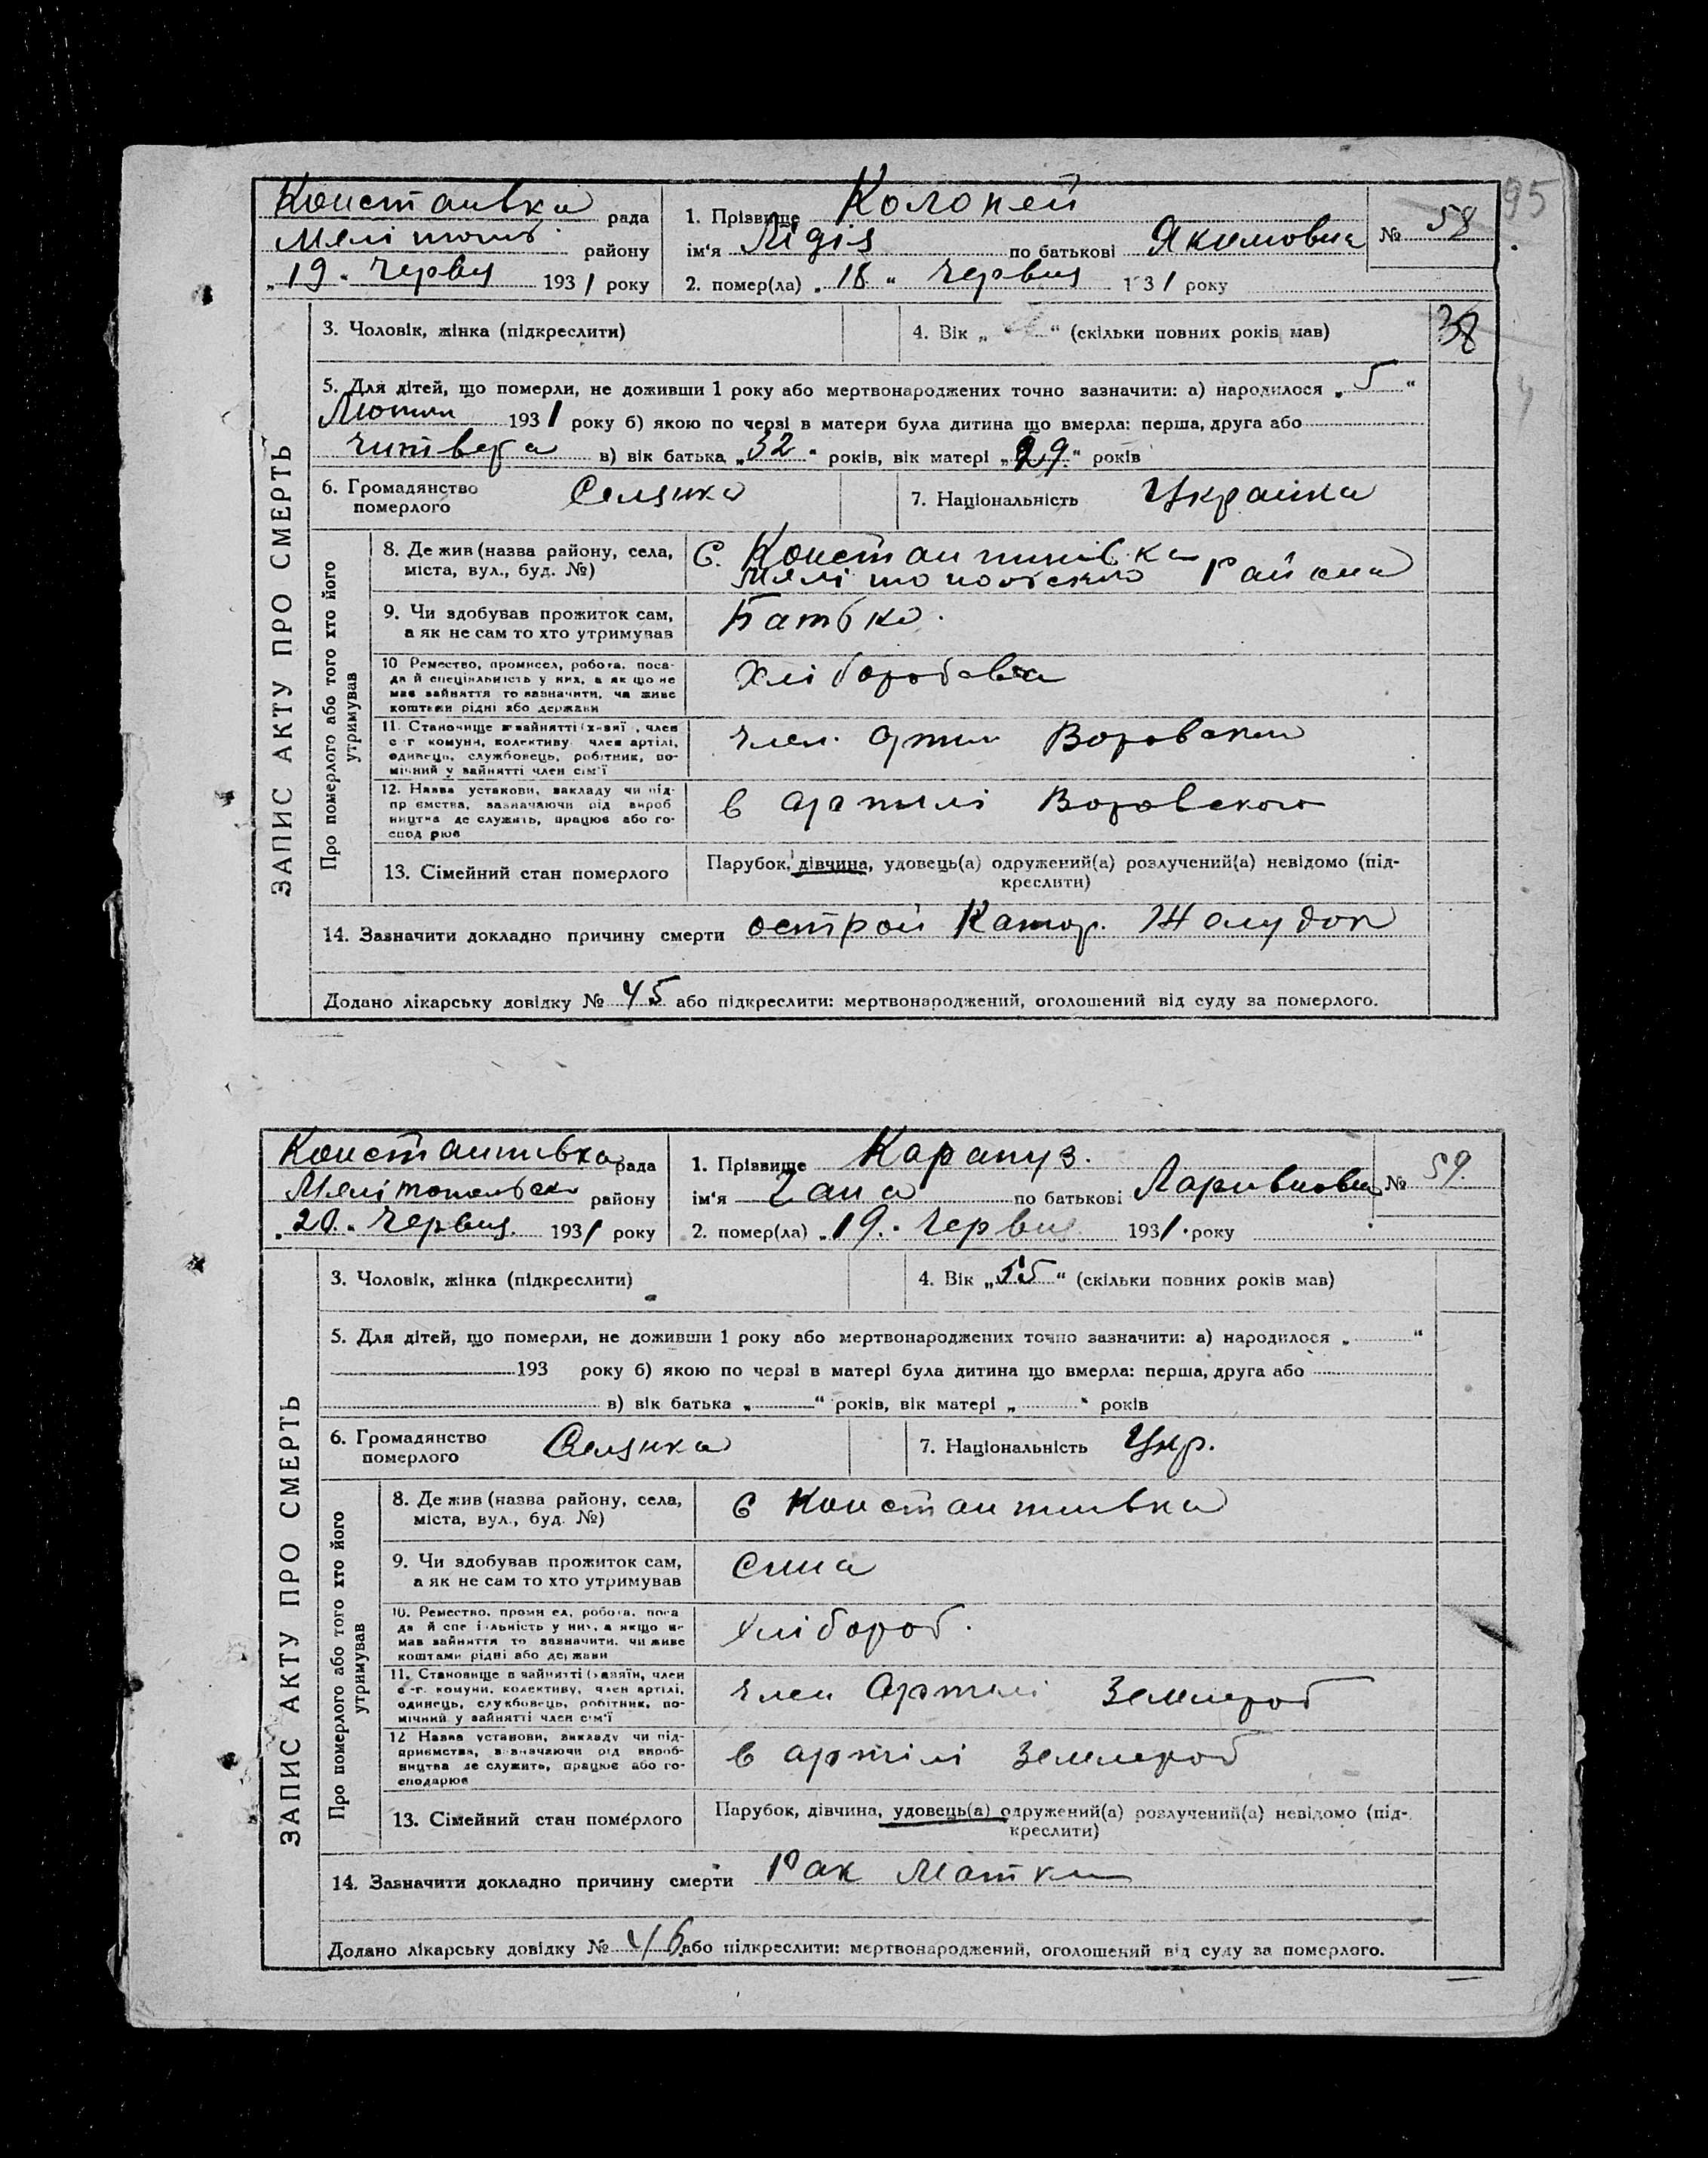 95
Констанівка рада
Мелітоп. району
„19" червня 1931 року
1. Прізвище Колопей
ім'я Лідія по батькові Якимовна
№ 58
2. помер(ла) „18" червня 131 року
ЗАПИС АКТУ ПРО СМЕРТЬ
3. Чоловік, жінка (підкреслити)
4. Вік „ " (скільки повних років мав)
38
5. Для дітей, що померли, не доживши 1 року або мертвонароджених точно зазначити: а) народилося „5"
Лютня 1931 року б) якою по черзі в матери була дитина що вмерла: перша, друга або
читверта в) вік батька „32" років, вік матері „29" років
6. Громадянство померлого Селянка
7. Національність Украинка
Про померлого або того хто його утримував
8. Де жив (назва району, села, міста, вул., буд. №)
С. Константинівка
Мелітопольского Района
9. Чи здобував прожиток сам, а як не сам то хто утримував
Батько.
10 Ремество, промисел, робота, посада й спеціяльність у них, а як що не має зайняття то зазначити, чи живе коштами рідні або держави
Хлібороб
11. Становище в зайнятті (хазяї, член с.-г. комуни, колективу, член артілі, одинець, службовець, робітник, помічний у зайнятті член сім'ї
член. Артил Воровского
12. Назва установи, закладу чи підприємства, зазначаючи рід виробництва де служить, працює або господарює
в артилі Воровского
13. Сімейний стан померлого
Парубок, дівчина, удовець(а) одружений(а) розлучений(а) невідомо (підкреслити)
14. Зазначити докладно причину смерти острой Катар. Жалудок
Додано лікарську довідку № 45 або підкреслити: мертвонароджений, оголошений від суду за померлого.
Константивка рада
Мелітопольско району
„20" червня 1931 року
1. Прізвище Карапуз.
ім'я Гана по батькові Ларивновна
№ 59.
2. помер(ла) „19." червня 1931 року
ЗАПИС АКТУ ПРО СМЕРТЬ
3. Чоловік, жінка (підкреслити)
4. Вік „55" (скільки повних років мав)
5. Для дітей, що померли, не доживши 1 року або мертвонароджених точно зазначити: а) народилося „ "
193 року б) якою по черзі в матері була дитина що вмерла: перша, друга або
в) вік батька „ " років, вік матері „ " років
6. Громадянство померлого Селянка
7. Національність Укр.
Про померлого або того хто його утримував
8. Де жив (назва району, села, міста, вул., буд. №)
С Константивка
9. Чи здобував прожиток сам, а як не сам то хто утримував
Сина
10. Ремество, промисел, робота, посада й спеціяльність у них, а якщо не має зайняття то зазначити, чи живе коштами рідні або держави
Хлібороб.
11. Становище в зайнятті (хазяїн, член с.-г. комуни, колективу, член артілі, одинець, службовець, робітник, помічний у зайнятті член сім'ї
член Артілі Землероб
12 Назва установи, закладу чи підприємства, зазначаючи рід виробництва де служить, працює або господарює
в артілі Землероб
13. Сімейний стан померлого
Парубок, дівчина, удовець(а) одружений(а) розлучений(а) невідомо (підкреслити)
14. Зазначити докладно причину смерти Рак Матки
Додано лікарську довідку № 46 або підкреслити: мертвонароджений, оголошений від суду за померлого.